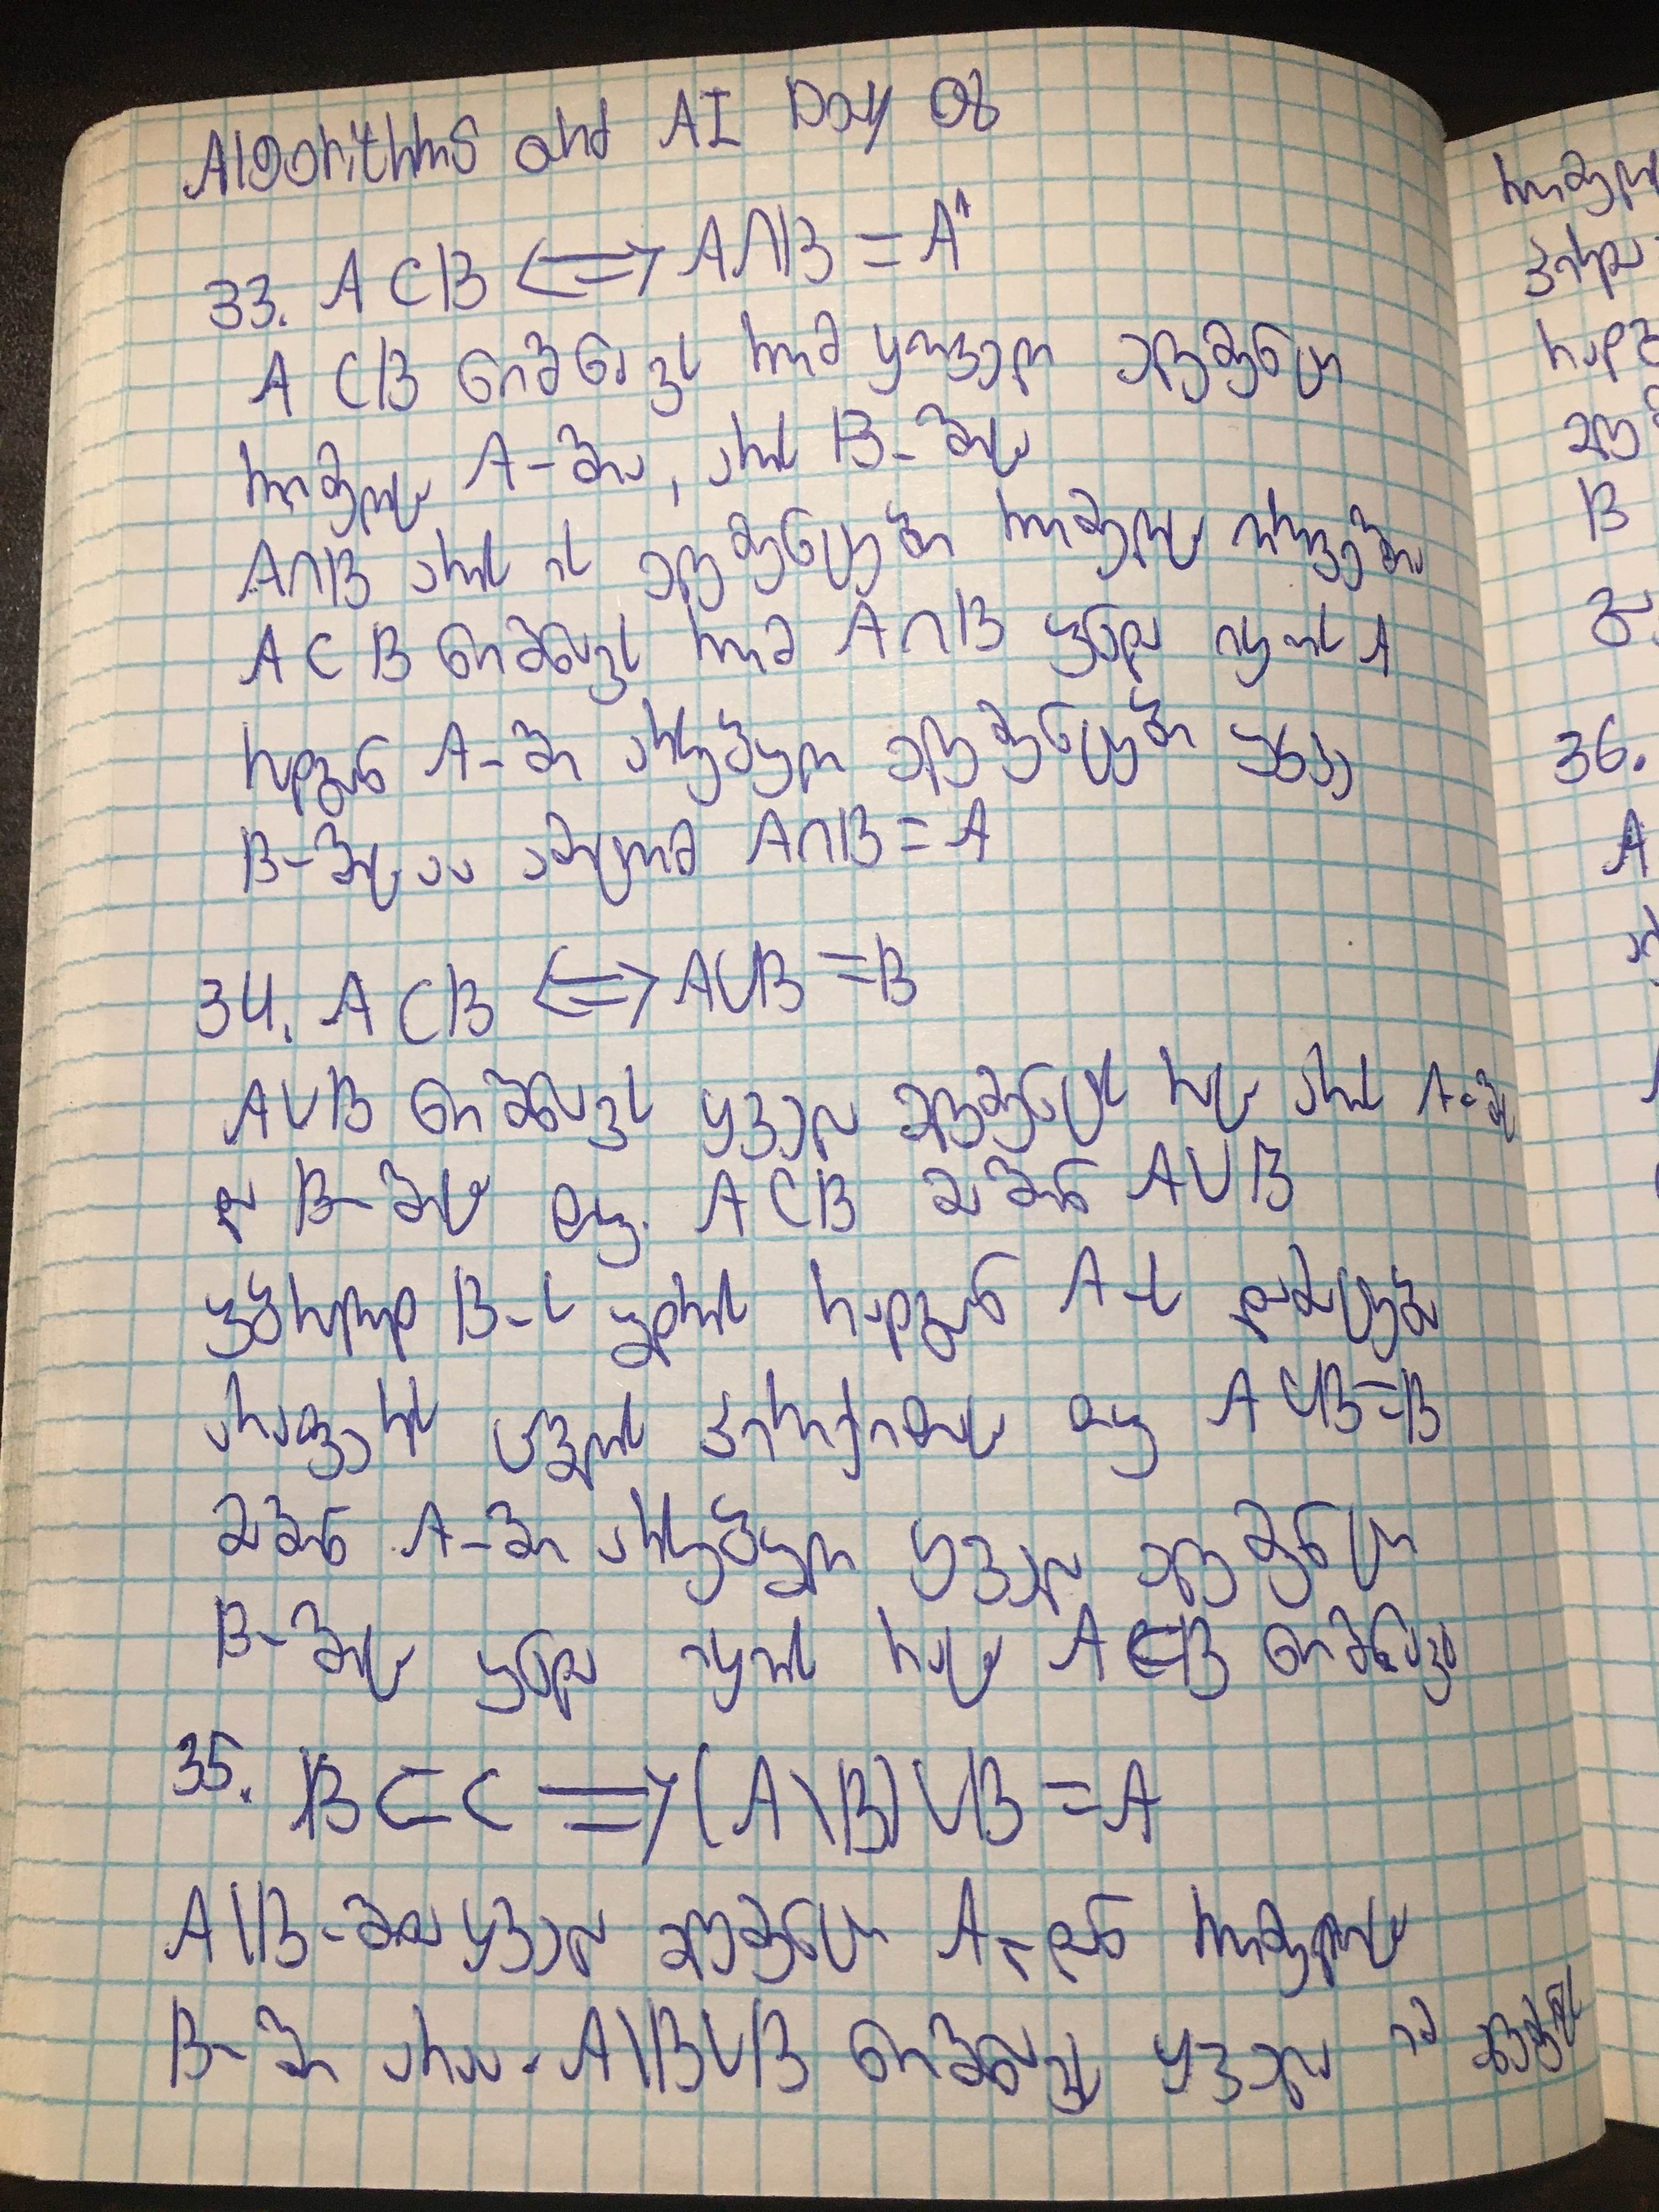 Algorithms and AI Day 08
33. A ⊂ B <=> A∩B = A
A ⊂ B ნიშნავს რომ ყოველი ელემენტი
რომელიც A-შია, არის B-შიც
A∩B არის ის ელემენტები რომელიც ორივეშია
A ⊂ B ნიშნავს რომ A∩B უნდა იყოს A
რადგან A-ში არსებული ელემენტები უკვე
B-შიცაა ამიტომ A∩B = A
34. A ⊂ B <=> A∪B = B
A∪B ნიშნავს ყველა ელემენტს რაც არის A-ში
და B-შიც თუ A ⊂ B მაშინ A∪B
უბრალოდ B-ს უდრის რადგან A-ს დამატება
არაფერს ცვლის პირიქითაც თუ A∪B=B
მაშინ A-ში არსებული ყველა ელემენტი
B-შიც უნდა იყოს რაც A⊂B ნიშნავს
35. B ⊂ C => (A\B)∪B = A
A\B-შია ყველა ელემენტი A-დან რომელიც
B-ში არაა. A\B∪B ნიშნავს ყველა იმ ელემენტს
რომელ
რადგ
მაშ
B
36.
A